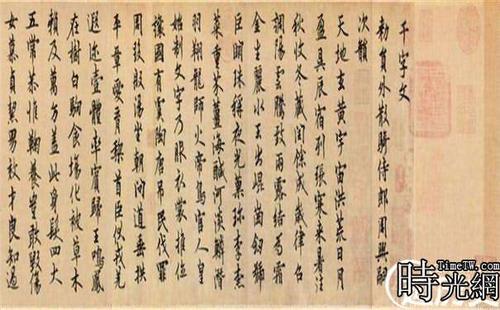 千字文
勑員外散騎侍郎周興嗣
次韻
天地玄黃宇宙洪荒日月
盈昃辰宿列張寒來暑往
秋收冬藏閏餘成歲律呂
調陽雲騰致雨露結為霜
金生麗水玉出崑崗劒號
巨闕珠稱夜光菓珎李柰
菜重芥薑海鹹河淡鱗潛
羽翔龍師火帝鳥官人皇
始制文字乃服衣裳推位
讓國有虞陶唐吊民伐罪
周發殷湯坐朝問道垂拱
平章愛育黎首臣伏戎羌
遐迩壹體率賓歸王鳴鳳
在樹白駒食場化被草木
賴及萬方盖此身髮四大
五常恭惟鞠養豈敢毀傷
女慕貞絜男效才良知過
TimeTW.com
時光網